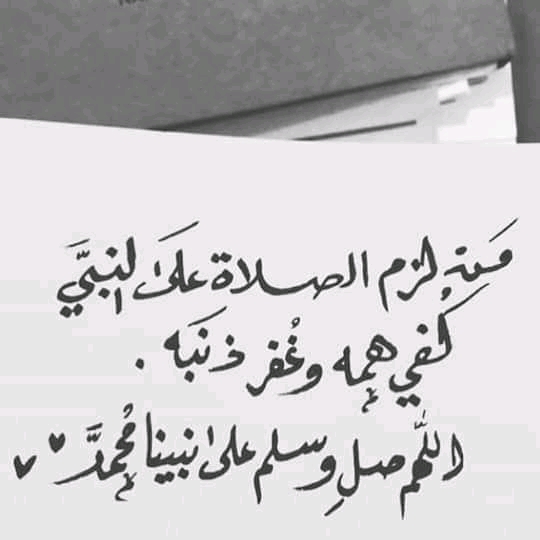 مَن لزم الصلاة علَى النبيَّ
كُفي همه وغُفر ذنبَه .
اللّهم صلِ وسلم على نبينا مُحمدَّ ♥♥